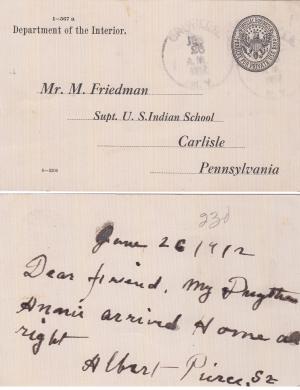 1—567 a
Department of the Interior.
Mr. M. Friedman
Supt. U. S. Indian School
Carlisle
Pennsylvania
230
June 26 1912
Dear friend, My Daughter
Annie arrived Home all
right
Albert Pierce, Sr